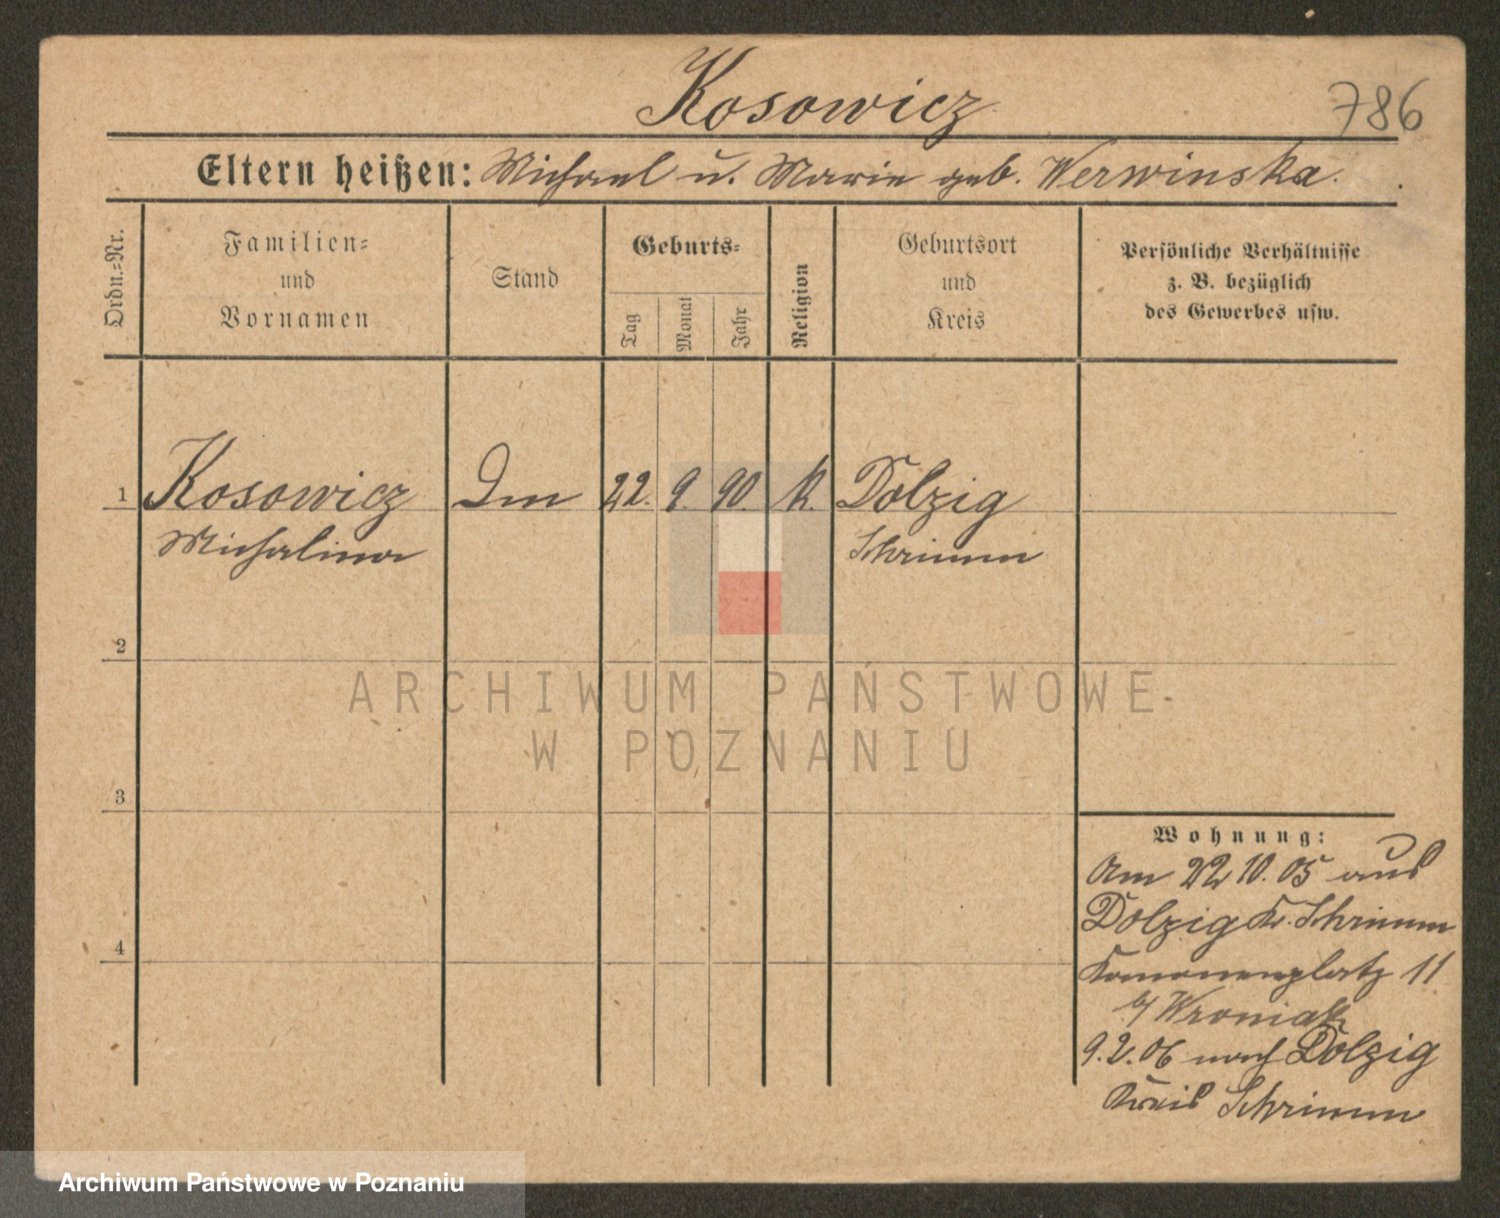 Kosowicz
786
Eltern heißen: Michael u. Marie geb. Werwinska.
Ordn.-Nr.
Familien-
und
Vornamen
Stand
Geburts-
Tag
Monat
Jahr
Religion
Geburtsort
und
Kreis
Persönliche Verhältnisse
z. B. bezüglich
des Gewerbes usw.
1 Kosowicz 22. 9. 90. k. Dolzig
Michalina Schrimm
2
ARCHIWUM PAŃSTWOWE
W POZNANIU
3
Wohnung:
Am 22 10. 05 aus
Dolzig Kr. Schrimm
4
Kanonenplatz 11
b/ Wroniak
9.2.06 nach Dolzig
Kreis Schrimm
Archiwum Państwowe w Poznaniu